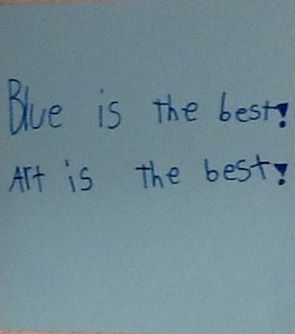 Blue is the best!
Art is the best!